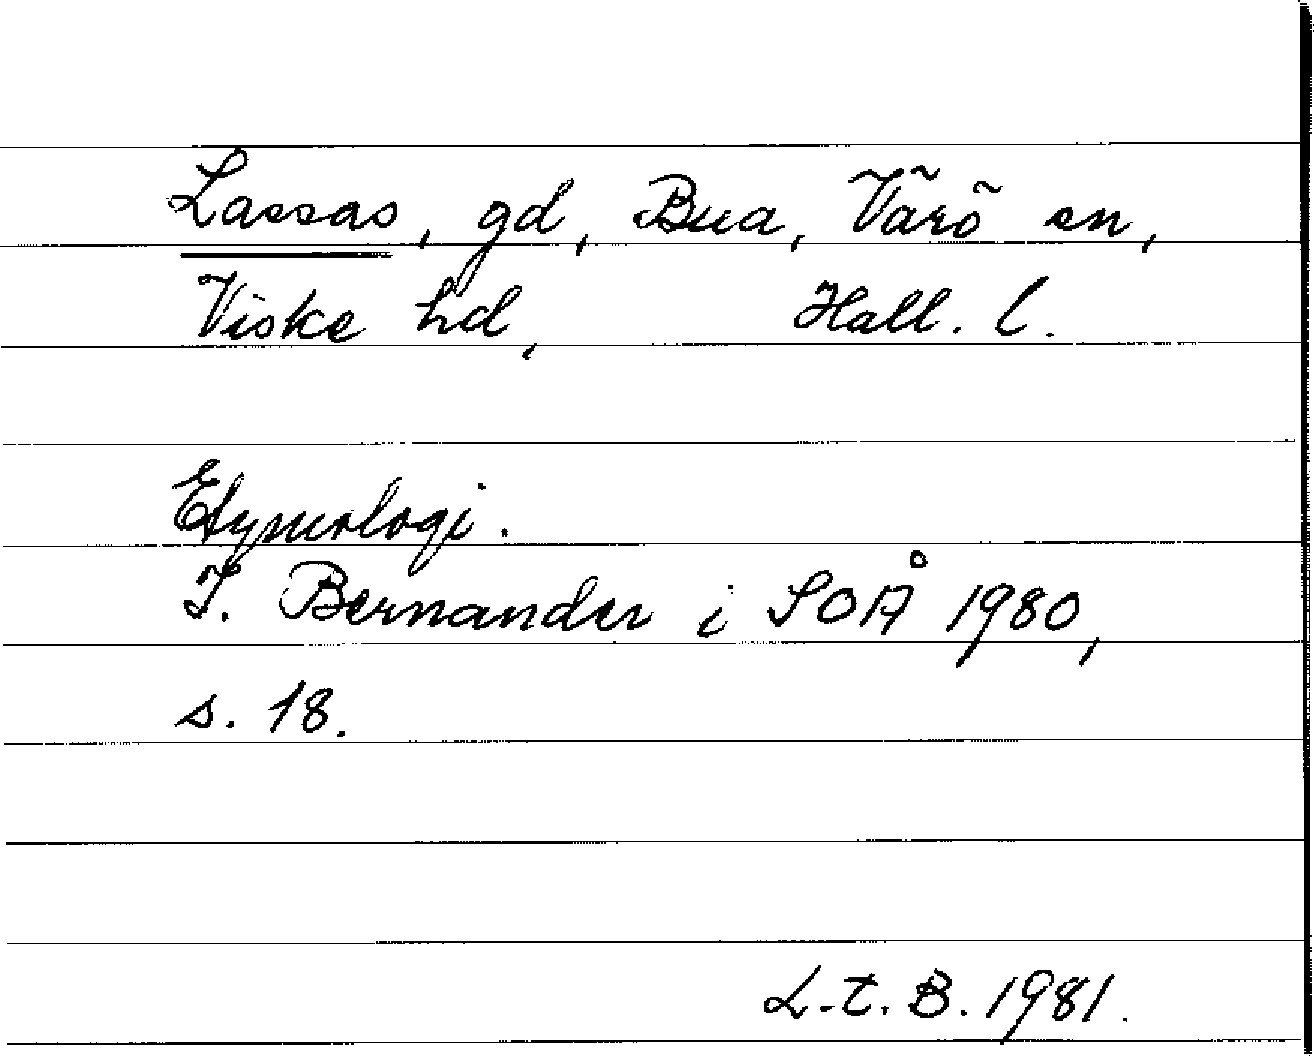 Lassas, gd, Bua, Värö sn,
Viske hd, Hall. l.
Etymologi.
I. Bernander i SOÅ 1980,
s. 18.
L.t.B. 1981.